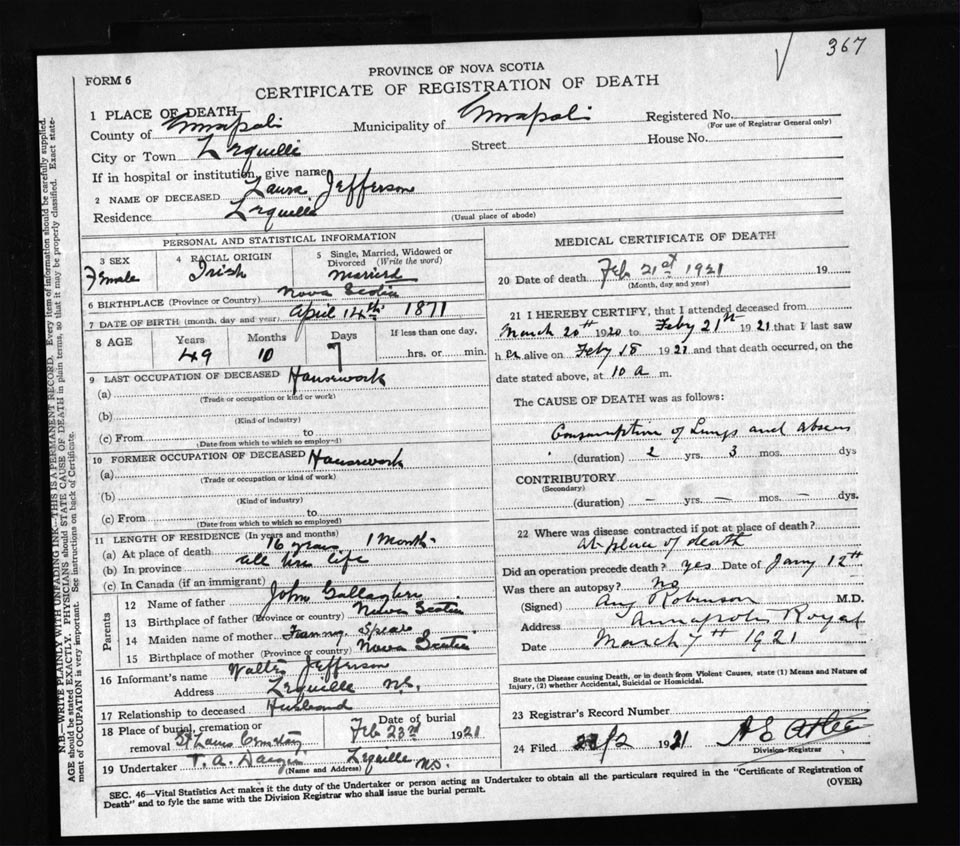 367
FORM 6
PROVINCE OF NOVA SCOTIA
CERTIFICATE OF REGISTRATION OF DEATH
1 PLACE OF DEATH
County of Annapolis Municipality of Annapolis Registered No.
(For use of Registrar General only)
City or Town Lequille Street House No.
If in hospital or institution, give name
2 NAME OF DECEASED Laura Jefferson
Residence Lequille (Usual place of abode)
PERSONAL AND STATISTICAL INFORMATION
3 SEX Female
4 RACIAL ORIGIN Irish
5 Single, Married, Widowed or Divorced (Write the word) Married
6 BIRTHPLACE (Province or Country) Nova Scotia
7 DATE OF BIRTH (month, day and year) April 14th 1871
8 AGE Years 49 Months 10 Days 7 If less than one day, hrs. or min.
9 LAST OCCUPATION OF DECEASED Housework
(a)
(Trade or occupation or kind or work)
(b)
(Kind of industry)
(c) From to
(Date from which to which so employed)
10 FORMER OCCUPATION OF DECEASED Housework
(a)
(Trade or occupation or kind of work)
(b)
(Kind of industry)
(c) From to
(Date from which to which so employed)
11 LENGTH OF RESIDENCE (In years and months)
(a) At place of death 16 years 1 Month
(b) In province all her life
(c) In Canada (if an immigrant)
Parents
12 Name of father John Gallagher
13 Birthplace of father (Province or country) Nova Scotia
14 Maiden name of mother Fanny Spears
15 Birthplace of mother (Province or country) Nova Scotia
16 Informant's name Walter Jefferson
Address Lequille N.S.
17 Relationship to deceased Husband
18 Place of burial, cremation or removal St Louis Cemetery Date of burial Feb 23rd 1921
19 Undertaker T. A. Lequille N.S.
(Name and Address)
MEDICAL CERTIFICATE OF DEATH
20 Date of death Feb 21st 1921 19
(Month, day and year)
21 I HEREBY CERTIFY, that I attended deceased from
March 20th 1920 to Feby 21st 1921 that I last saw
her alive on Feby 18 1921 and that death occurred, on the
date stated above, at 10 a m.
The CAUSE OF DEATH was as follows:
Consumption of Lungs and abscess
(duration) 2 yrs. 3 mos. dys
CONTRIBUTORY
(Secondary)
(duration) — yrs. — mos. — dys.
22 Where was disease contracted if not at place of death?
At place of death
Did an operation precede death? yes Date of Jany 12th
Was there an autopsy? No
(Signed) Aug Robinson M.D.
Address Annapolis Royal
Date March 7th 1921
State the Disease causing Death, or in death from Violent Causes, state (1) Means and Nature of
Injury, (2) whether Accidental, Suicidal or Homicidal.
23 Registrar's Record Number
24 Filed 1921
Division Registrar
SEC. 46—Vital Statistics Act makes it the duty of the Undertaker or person acting as Undertaker to obtain all the particulars required in the "Certificate of Registration of
Death" and to fyle the same with the Division Registrar who shall issue the burial permit. (OVER)
N.B.—WRITE PLAINLY WITH UNFADING INK—THIS IS A PERMANENT RECORD. Every item of information should be carefully supplied.
AGE should be stated EXACTLY. PHYSICIANS should STATE CAUSE OF DEATH in plain terms, so that it may be properly classified. Exact state-
ment of OCCUPATION is very important. See instructions on back of Certificate.